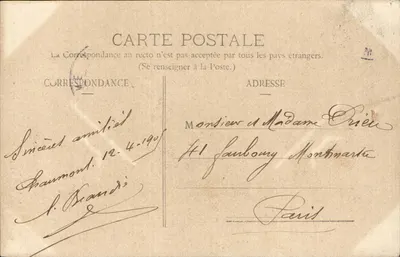 CARTE POSTALE
La Correspondance au recto n'est pas acceptée par tous les pays étrangers.
(Se renseigner à la Poste)
CORRESPONDANCE
ADRESSE
Sincères amitiés
Chaumont. 12-4-190
Monsieur et Madame
71 faubourg Montmartre
Paris